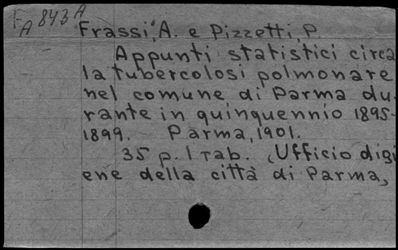 FA 843A
Frassi, A. e Pizzetti, P
Appunti statistici circa
la tubercolosi polmonare
nel comune di Parma du-
rante in quinquennio 1895-
1899. Parma, 1901.
35 p. 1 tab. (Ufficio digi
ene della città di Parma,